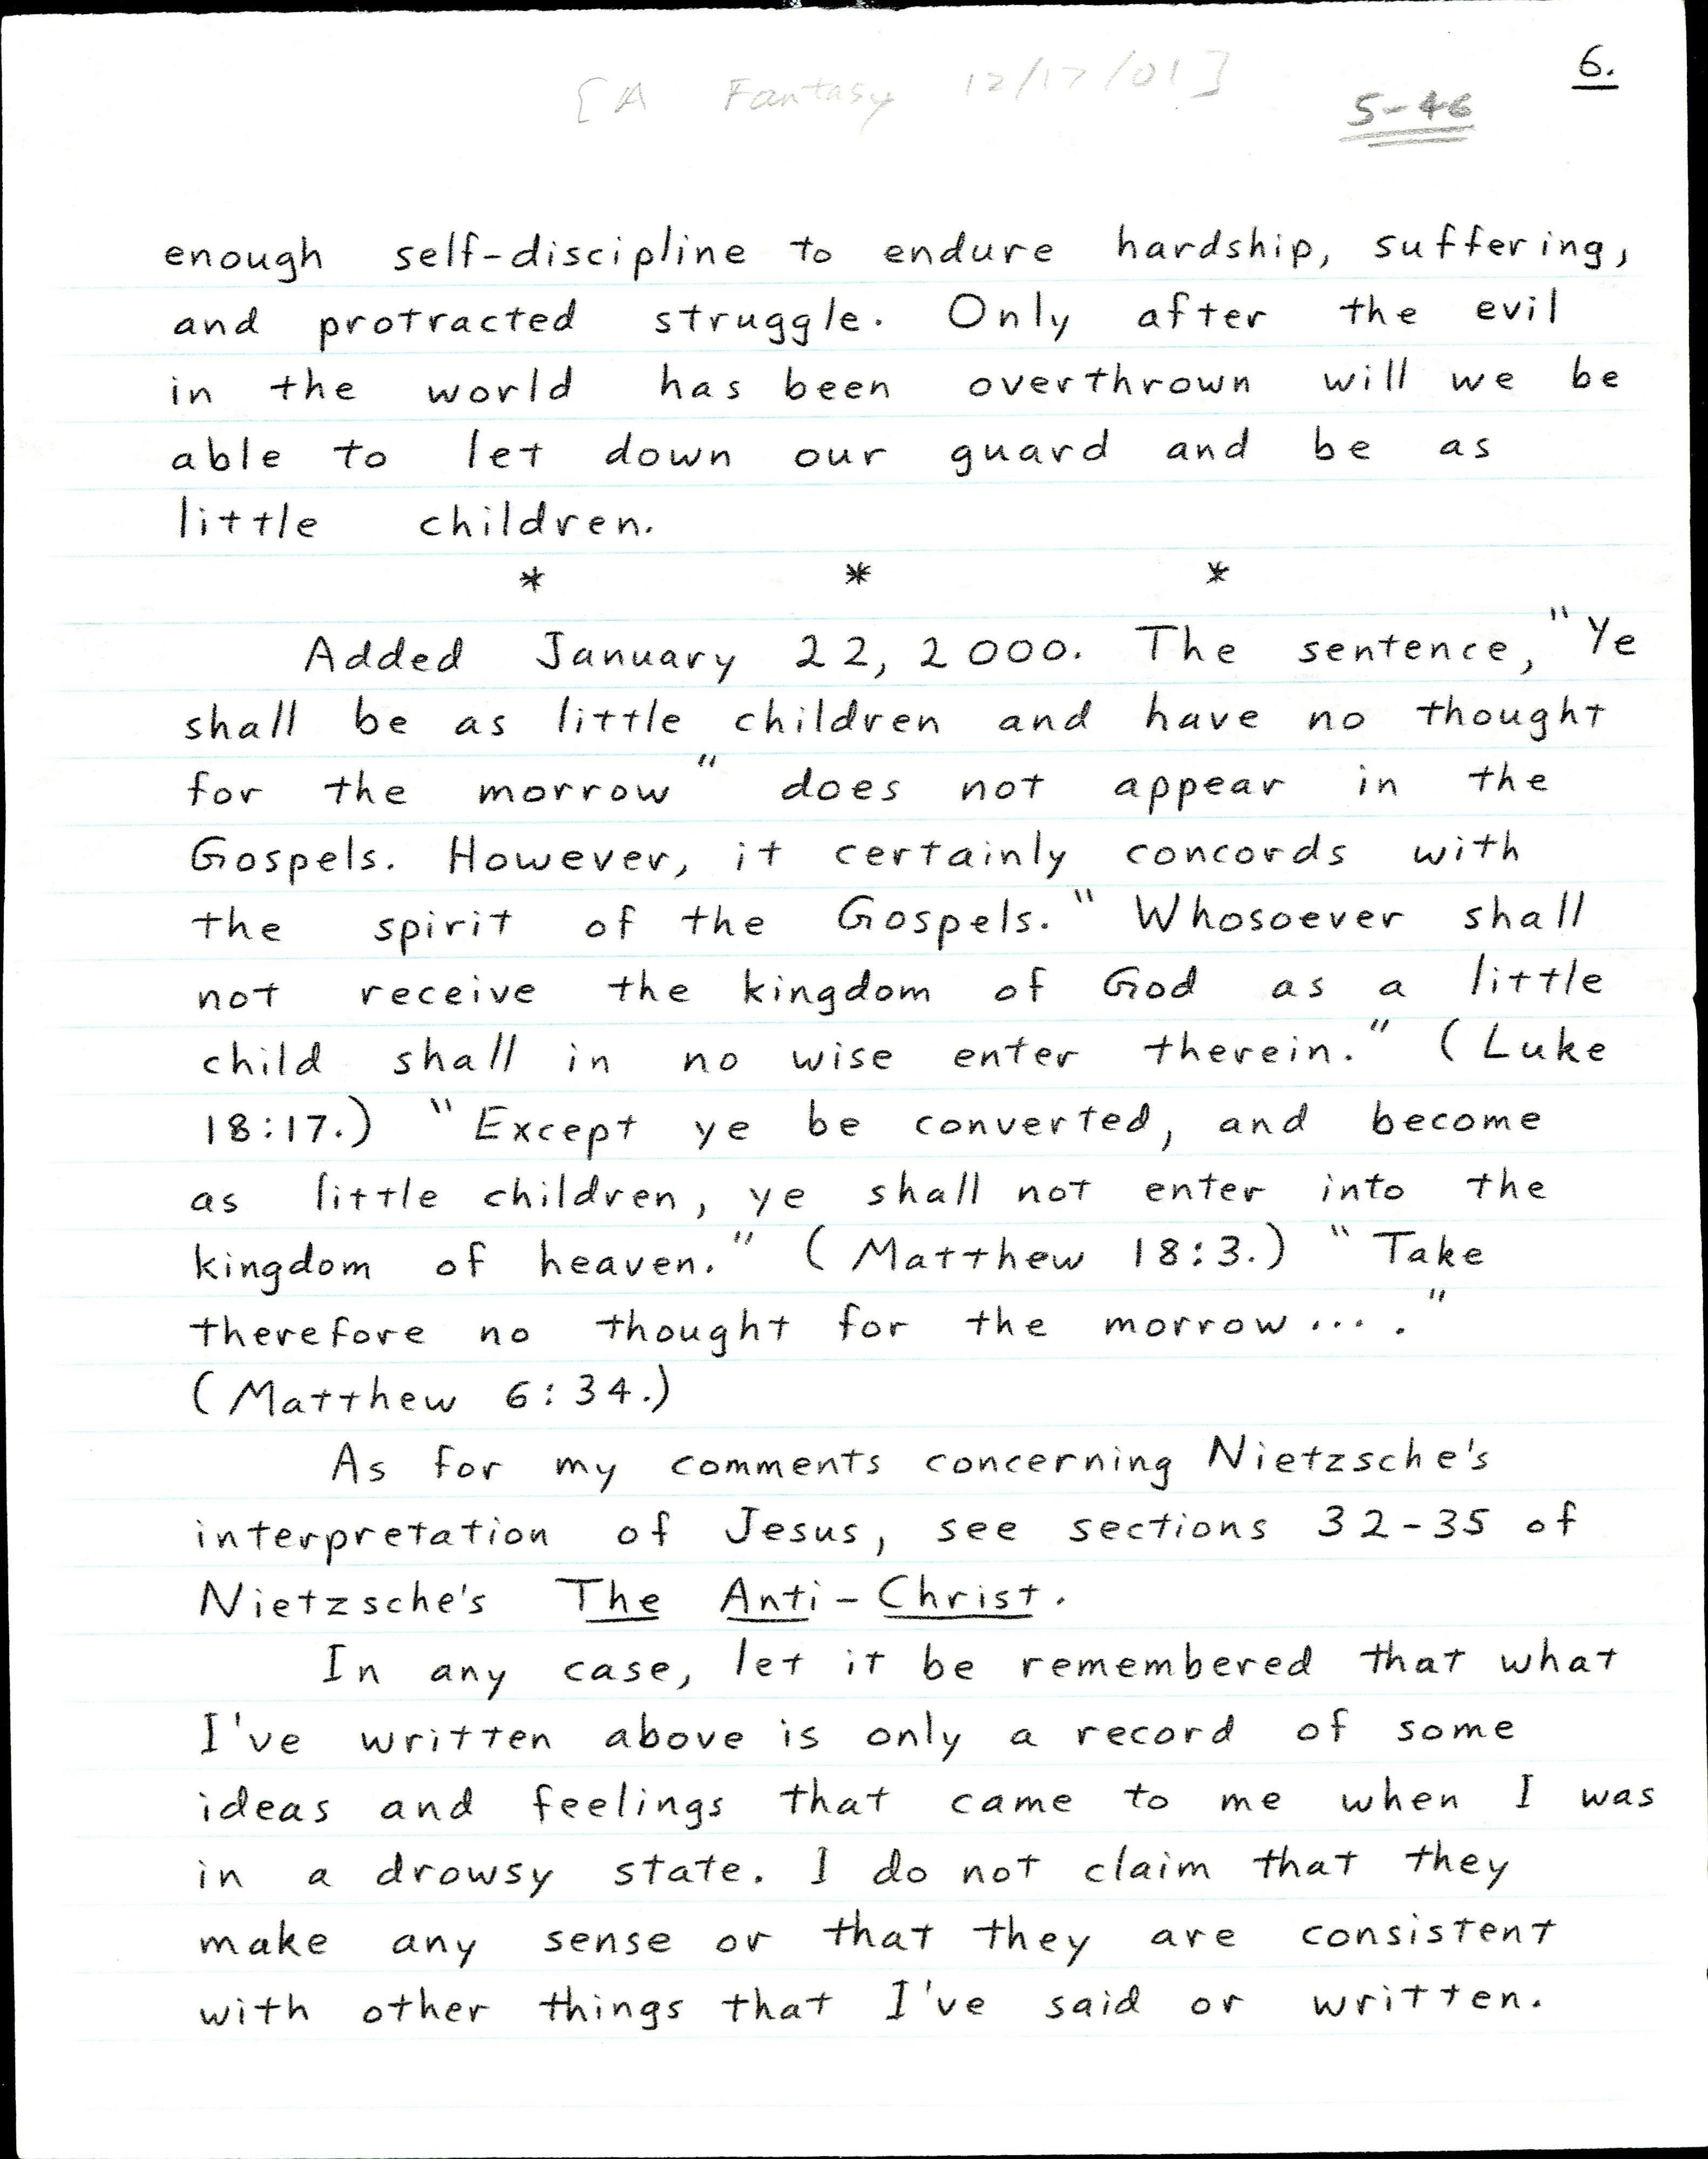 [A Fantasy 12/17/01]
6.
5-46
enough self-discipline to endure hardship, suffering,
and protracted struggle. Only after the evil
in the world has been overthrown will we be
able to let down our guard and be as
little children.
* * *
Added January 22, 2000. The sentence, "Ye
shall be as little children and have no thought
for the morrow" does not appear in the
Gospels. However, it certainly concords with
the spirit of the Gospels. "Whosoever shall
not receive the kingdom of God as a little
child shall in no wise enter therein." (Luke
18:17.) "Except ye be converted, and become
as little children, ye shall not enter into the
kingdom of heaven." (Matthew 18:3.) "Take
therefore no thought for the morrow... ."
(Matthew 6:34.)
As for my comments concerning Nietzsche's
interpretation of Jesus, see sections 32-35 of
Nietzsche's The Anti-Christ.
In any case, let it be remembered that what
I've written above is only a record of some
ideas and feelings that came to me when I was
in a drowsy state. I do not claim that they
make any sense or that they are consistent
with other things that I've said or written.